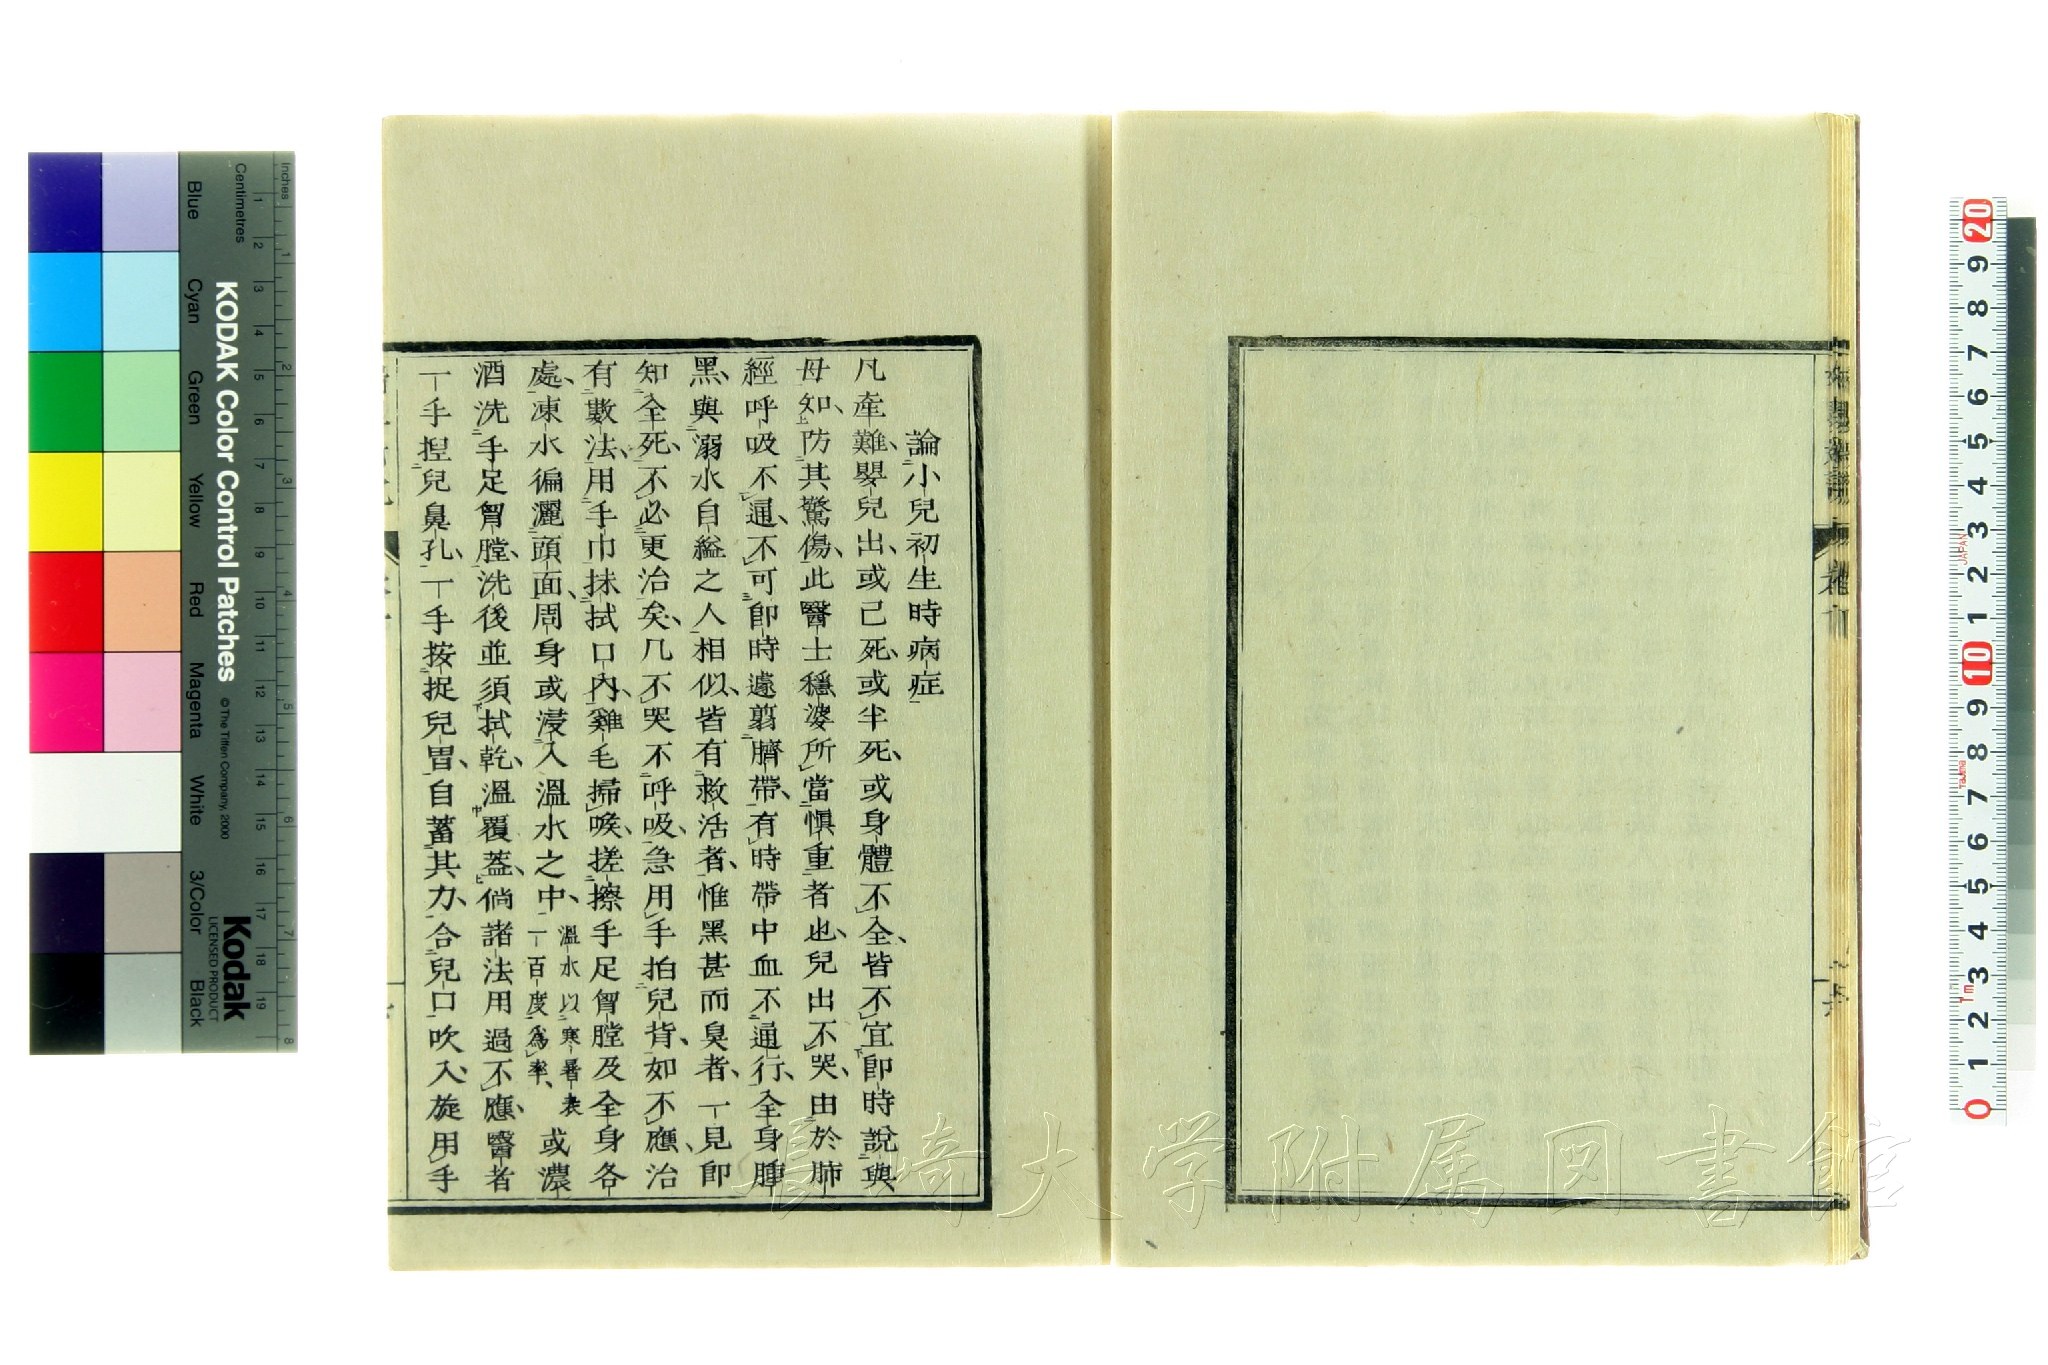 論小兒初生時病症
凡產難嬰兒出或已死或半死或身體不全皆不宜即時說與
母知防其驚傷此醫士穩婆所當慎重者也兒出不哭由於肺
經呼吸不通不可即時遽剪臍帶有時帶中血不通行全身腫
黑與溺水自縊之人相似皆有救活者惟黑甚而臭者一見即
知全死不必更治矣凡不哭不呼吸急用手拍兒背如不應治
有數法用手巾抹拭口內雞毛掃喉搓擦手足胷膛及全身各
處凍水徧灑頭面周身或浸入溫水之中溫水以寒暑表一百度爲率或濃
酒洗手足胷膛洗後並須拭乾溫覆蓋倘諸法用過不應醫者
一手揑兒鼻孔一手按捉兒胃自蓄其力合兒口吹入旋用手
長崎大学附属図書館
KODAK Color Control Patches
© The Tiffen Company, 2000
Kodak
LICENSED PRODUCT
Inches
Centimetres
Blue
Cyan
Green
Yellow
Red
Magenta
White
3/Color
Black
1 2 3 4 5 6 7 8 9 10 11 12 13 14 15 16 17 18 19
1 2 3 4 5 6 7 8
20 9 8 7 6 5 4 3 2 1 10 9 8 7 6 5 4 3 2 1 0
JAPAN
Tajima